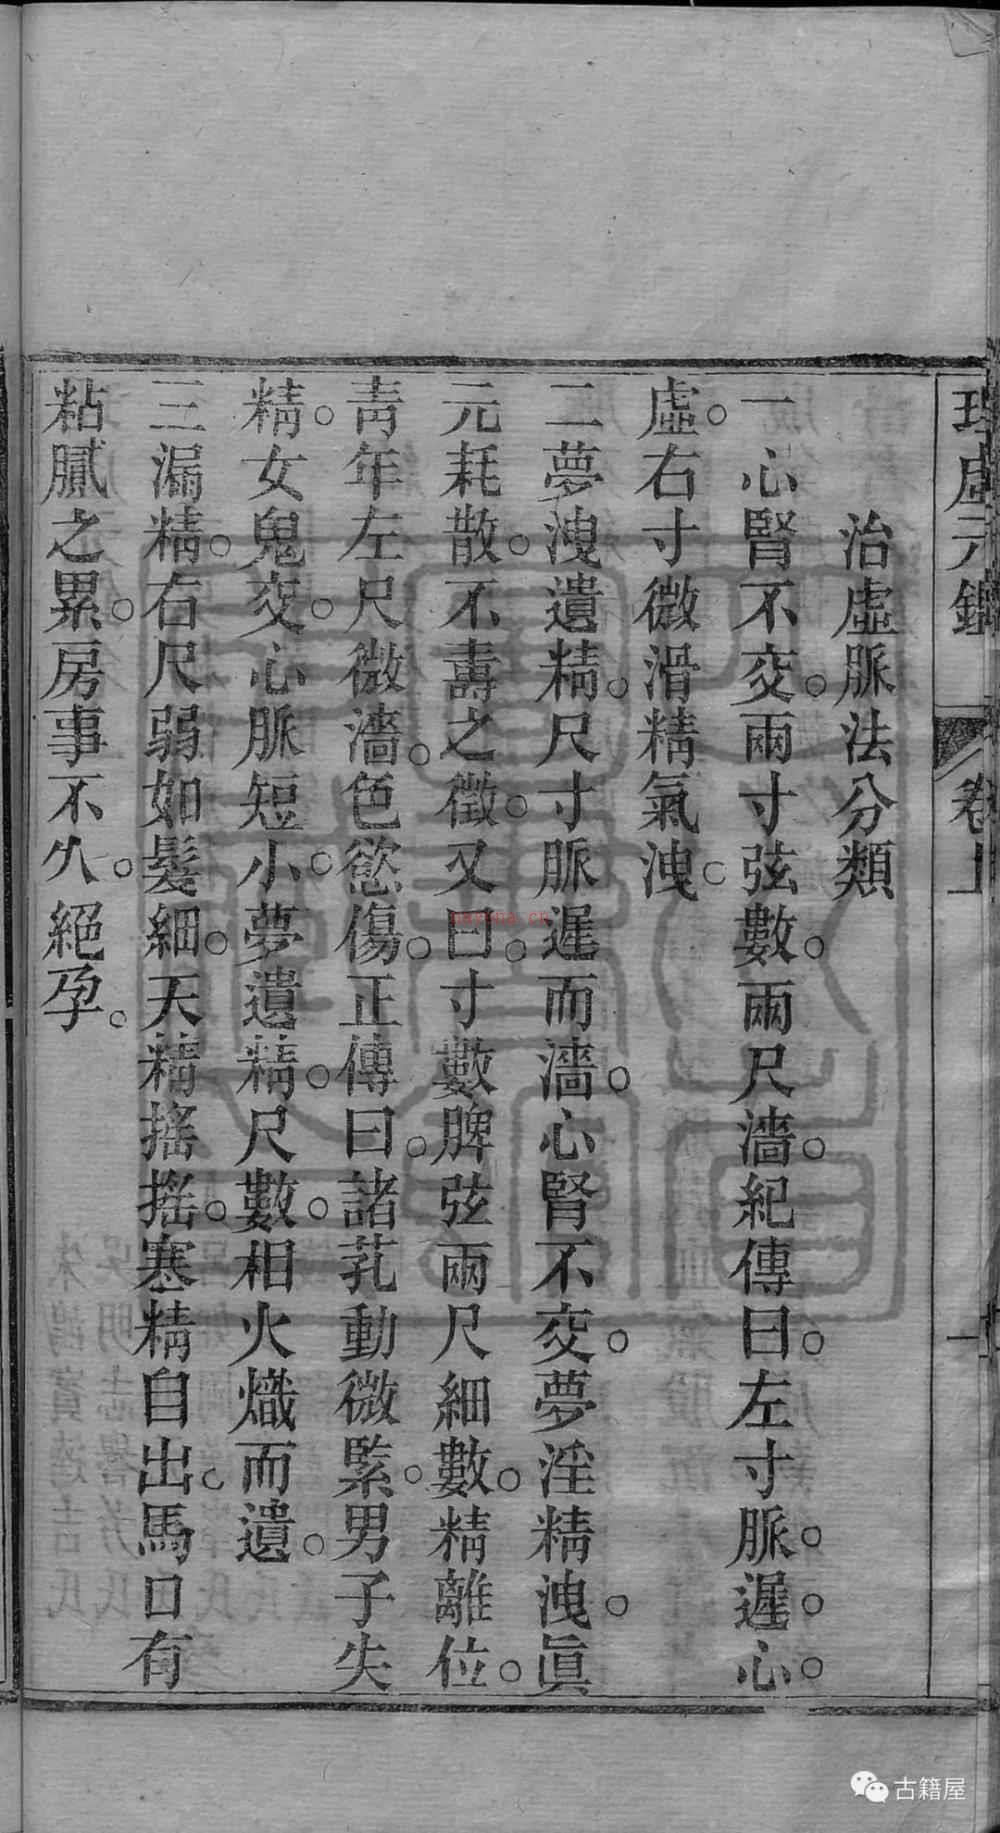 理虛元鑑
卷上
一
治虛脈法分類
一心腎不交。兩寸弦數。兩尺濇。紀傳曰。左寸脈。遲。心。
虛。右寸微滑精氣洩。
二夢洩遺精。尺寸脈遲而濇。心腎不交。夢淫精洩。眞
元耗散。不壽之徵。又曰。寸數脾弦兩尺細數。精離位。
靑年左尺微濇。色慾傷。正傳曰。諸芤動微緊。男子失
精。女鬼交。心脈短小。夢遺精。尺數。相火熾而遺。
三漏精。右尺弱如髮細。天精搖搖。寒精自出。馬口有
粘膩之累。房事不久。絕孕。
nayona.cn
古籍屋